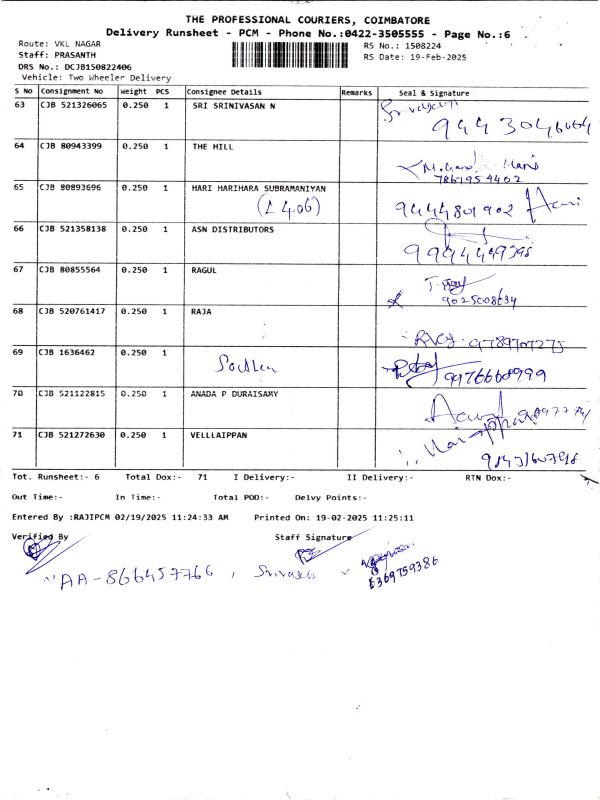 THE PROFESSIONAL COURIERS, COIMBATORE
Delivery Runsheet - PCM - Phone No.:0422-3505555 - Page No.:6
Route: VKL NAGAR
RS No.: 1508224
Staff: PRASANTH
RS Date: 19-Feb-2025
DRS No.: DCJB150822406
Vehicle: Two Wheeler Delivery
S No Consignment No Weight PCS Consignee Details Remarks Seal & Signature
63 CJB 521326065 0.250 1 SRI SRINIVASAN N
64 CJB 80943399 0.250 1 THE HILL
7861954402
65 CJB 80893696 0.250 1 HARI HARIHARA SUBRAMANIYAN
9444801902 Hari
66 CJB 521358138 0.250 1 ASN DISTRIBUTORS
67 CJB 80855564 0.250 1 RAGUL
9025008634
68 CJB 520761417 0.250 1 RAJA
9789707275
69 CJB 1636462 0.250 1
9976660999
70 CJB 521122815 0.250 1 ANADA P DURAISAMY
71 CJB 521272630 0.250 1 VELLLAIPPAN
Tot. Runsheet:- 6 Total Dox:- 71 I Delivery:- II Delivery:- RTN Dox:-
Out Time:- In Time:- Total POD:- Delvy Points:-
Entered By :RAJIPCM 02/19/2025 11:24:33 AM Printed On: 19-02-2025 11:25:11
Verified By Staff Signature
6369759386